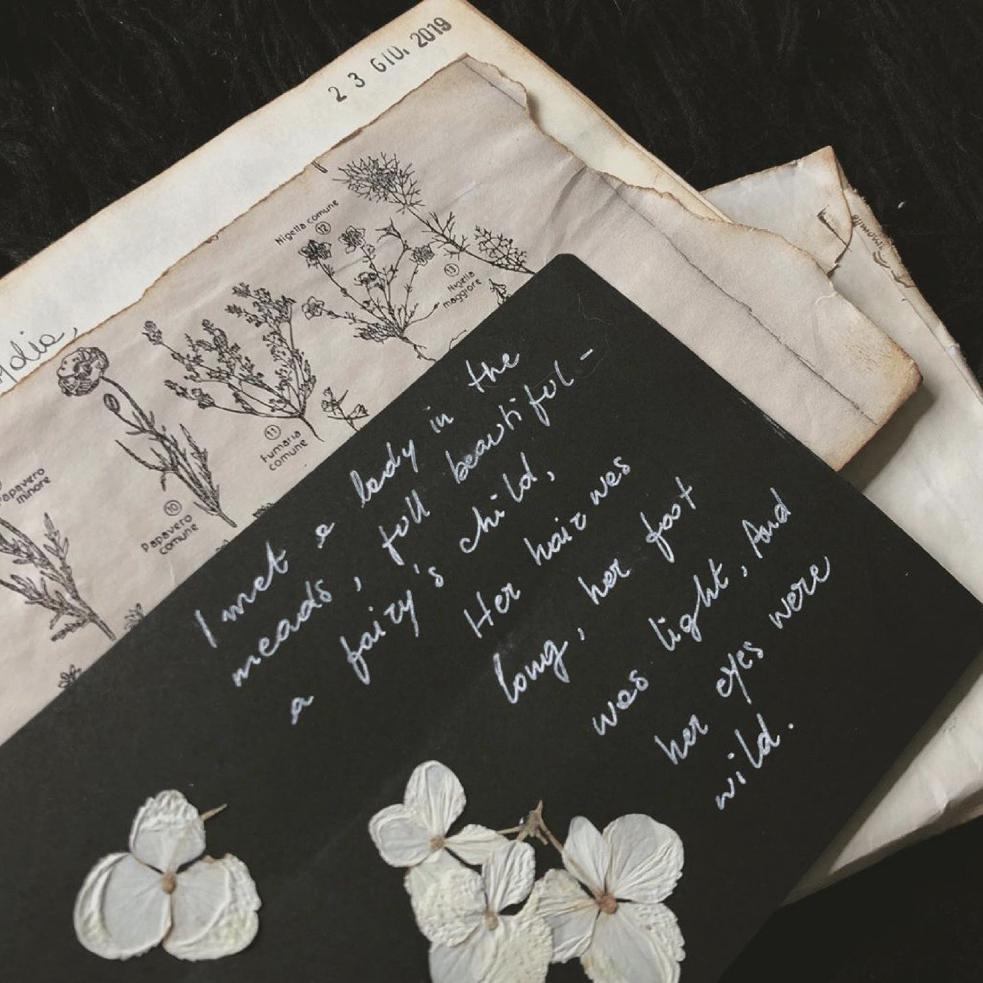 23 GIU. 2019
Nigella comune
12
13
Nigella
maggiore
11
Fumaria
comune
10
Papavero
comune
Papavero
minore
I met a lady in the
meads, full beautiful –
a fairy's child,
Her hair was
long, her foot
was light, And
her eyes were
wild.